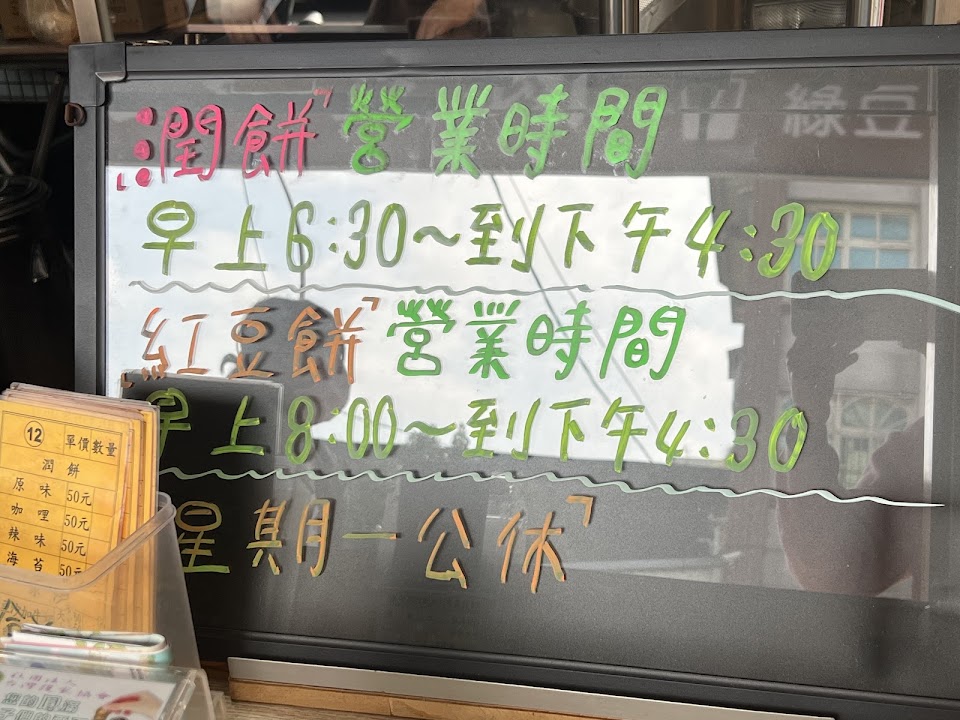 潤餅 營業時間
早上6:30~到下午4:30
紅豆餅 營業時間
早上8:00~到下午4:30
星期一公休
綠豆
12 單價數量
潤餅
原味 50元
咖哩 50元
辣味 50元
海苔 50元